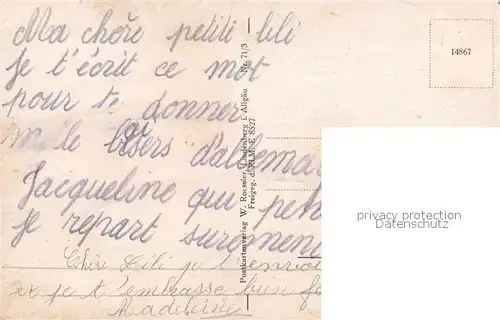 Ma chère petiti lili
Je t'écrit ce mot
pour te donner
m le baisers d'allema
Jacqueline qui pen
Je repart suremen
Chère Lili je t'envoi
et je t'embrasse bien f
Madeleine
Postkartenverlag W. Roessler, Lindenberg i. Allgäu Nr. 71/3
Freigeg. d. RLM-E 8527
14867
privacy protection
Datenschutz